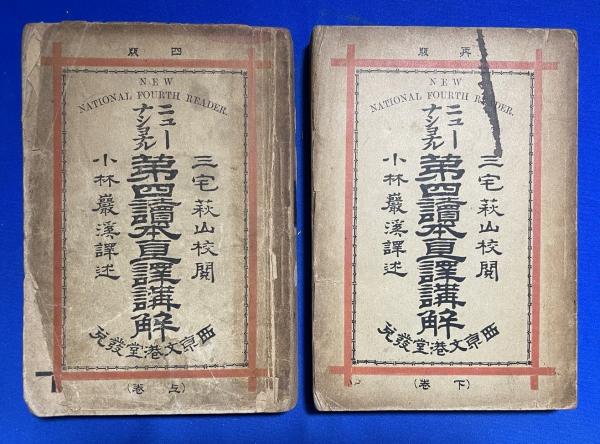 四版
NEW
NATIONAL FOURTH READER.
三宅萩山校閲
ニュー
ナショナル
第四讀本直譯講解
小林巖溪譯述
西京文港堂發兌
(上卷)
再版
NEW
NATIONAL FOURTH READER.
三宅萩山校閲
ニュー
ナショナル
第四讀本直譯講解
小林巖溪譯述
西京文港堂發兌
(下卷)